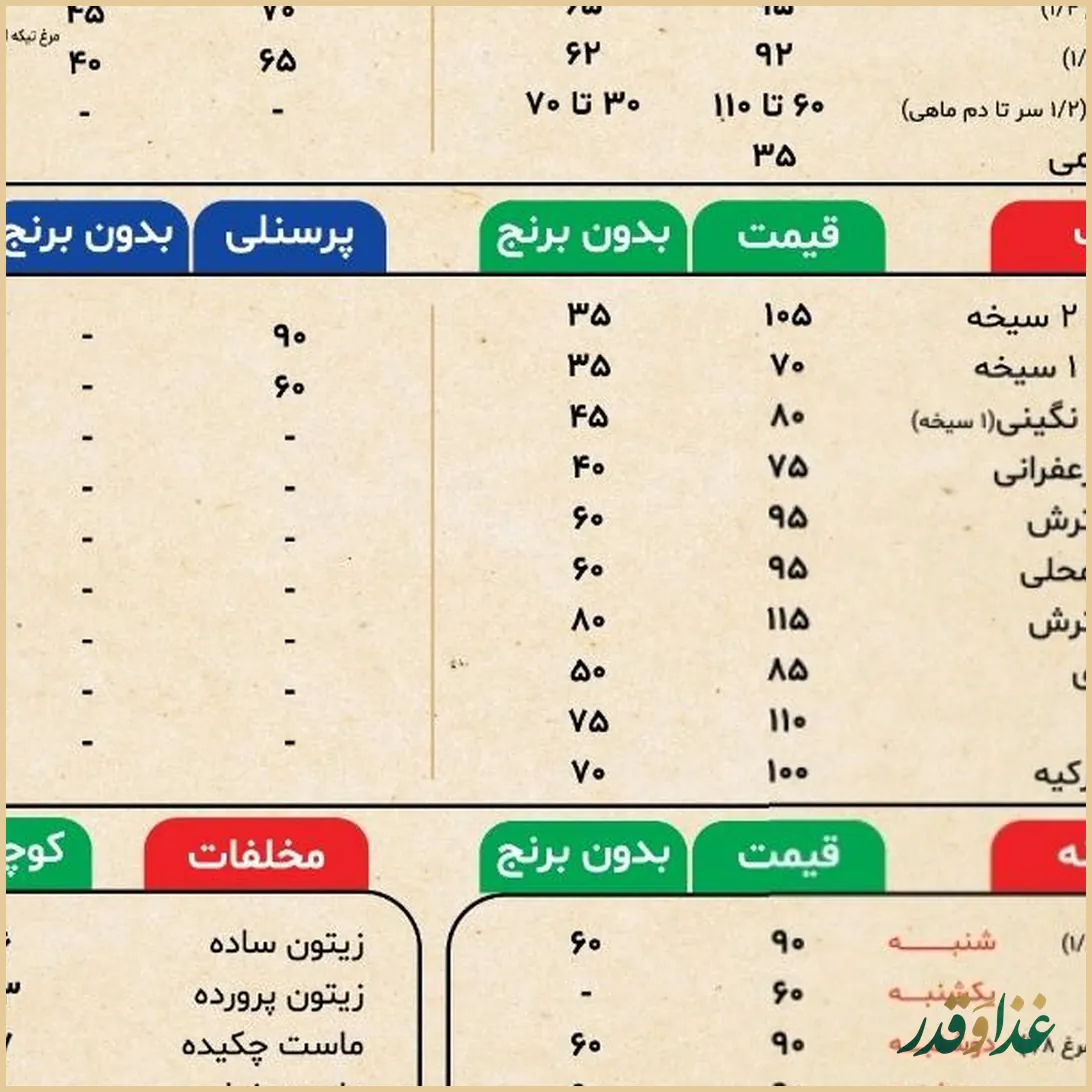 ۷۰ ۴۵
مرغ تیکه
۹۲ ۶۲ ۶۵ ۴۰
(۱/۲ سر تا دم ماهی) ۶۰ تا ۱۱۰ ۳۰ تا ۷۰ - -
۳۵
قیمت بدون برنج پرسنلی بدون برنج
۲ سیخه ۱۰۵ ۳۵ ۹۰ -
۱ سیخه ۷۰ ۳۵ ۶۰ -
نگینی(۱ سیخه) ۸۰ ۴۵ - -
۷۵ ۴۰ - -
۹۵ ۶۰ - -
۹۵ ۶۰ - -
۱۱۵ ۸۰ - -
۸۵ ۵۰ - -
۱۱۰ ۷۵ - -
۱۰۰ ۷۰
قیمت بدون برنج مخلفات
شنبـــه ۹۰ ۶۰ زیتون ساده
یکشنبـه ۶۰ - زیتون پرورده
۹۰ ۶۰ ماست چکیده
غذا و قدر